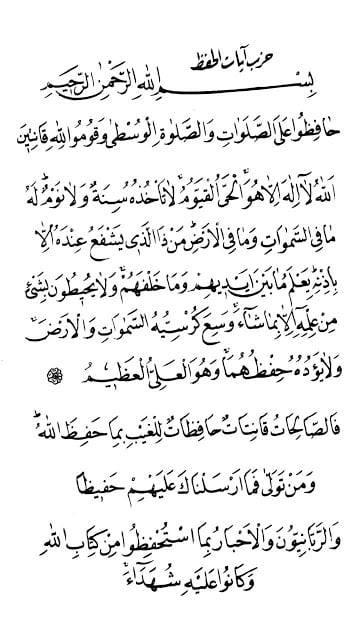 حزب آيات الحفظ
بِسْمِ اللّٰهِ الرَّحْمٰنِ الرَّحِيمِ
حَافِظُوا عَلَى الصَّلَوَاتِ وَالصَّلٰوةِ الْوُسْطٰى وَقُومُوا لِلّٰهِ قَانِتِينَ
اَللّٰهُ لَا اِلٰهَ اِلَّا هُوَ اَلْحَيُّ الْقَيُّومُ لَا تَأْخُذُهُ سِنَةٌ وَلَا نَوْمٌ لَهُ
مَا فِي السَّمٰوَاتِ وَمَا فِي الْاَرْضِ مَنْ ذَا الَّذِي يَشْفَعُ عِنْدَهُ اِلَّا
بِاِذْنِهِ يَعْلَمُ مَا بَيْنَ اَيْدِيهِمْ وَمَا خَلْفَهُمْ وَلَا يُحِيطُونَ بِشَيْءٍ
مِنْ عِلْمِهِ اِلَّا بِمَا شَاءَ وَسِعَ كُرْسِيُّهُ السَّمٰوَاتِ وَالْاَرْضَ
وَلَا يَؤُدُهُ حِفْظُهُمَا وَهُوَ الْعَلِيُّ الْعَظِيمُ
فَالصَّالِحَاتُ قَانِتَاتٌ حَافِظَاتٌ لِلْغَيْبِ بِمَا حَفِظَ اللّٰهُ
وَمَنْ تَوَلّٰى فَمَا اَرْسَلْنَاكَ عَلَيْهِمْ حَفِيظًا
وَالرَّبَّانِيُّونَ وَالْاَحْبَارُ بِمَا اسْتُحْفِظُوا مِنْ كِتَابِ اللّٰهِ
وَكَانُوا عَلَيْهِ شُهَدَاءَ